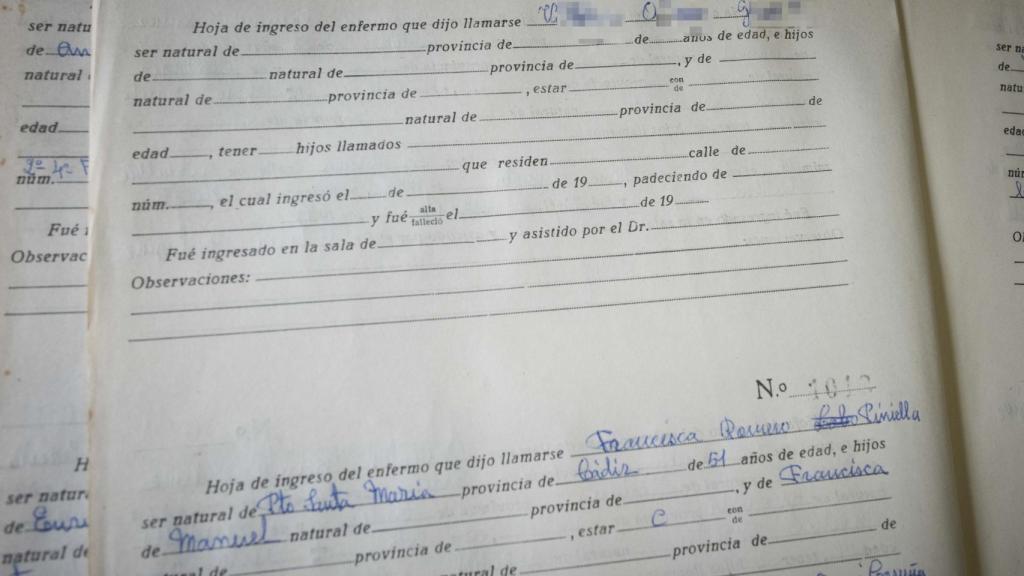 ser natu
de
natural
edad
2º 4ª F
núm.
Fué
Observac
H
ser natur
de
natural de
Hoja de ingreso del enfermo que dijo llamarse V O G
ser natural de provincia de de años de edad, e hijos
de natural de provincia de , y de
natural de provincia de , estar con de
natural de provincia de de
edad , tener hijos llamados
que residen calle de
núm. , el cual ingresó el de de 19 , padeciendo de
y fué alta falleció el de 19
Fué ingresado en la sala de y asistido por el Dr.
Observaciones:
N.º 1012
Hoja de ingreso del enfermo que dijo llamarse Francisca Romero Piniella
ser natural de Pto Santa María provincia de Cádiz de 51 años de edad, e hijos
de Manuel natural de provincia de , y de Francisca
natural de provincia de , estar C con de
provincia de de
ser na
de
natu
edad
núm
Ob